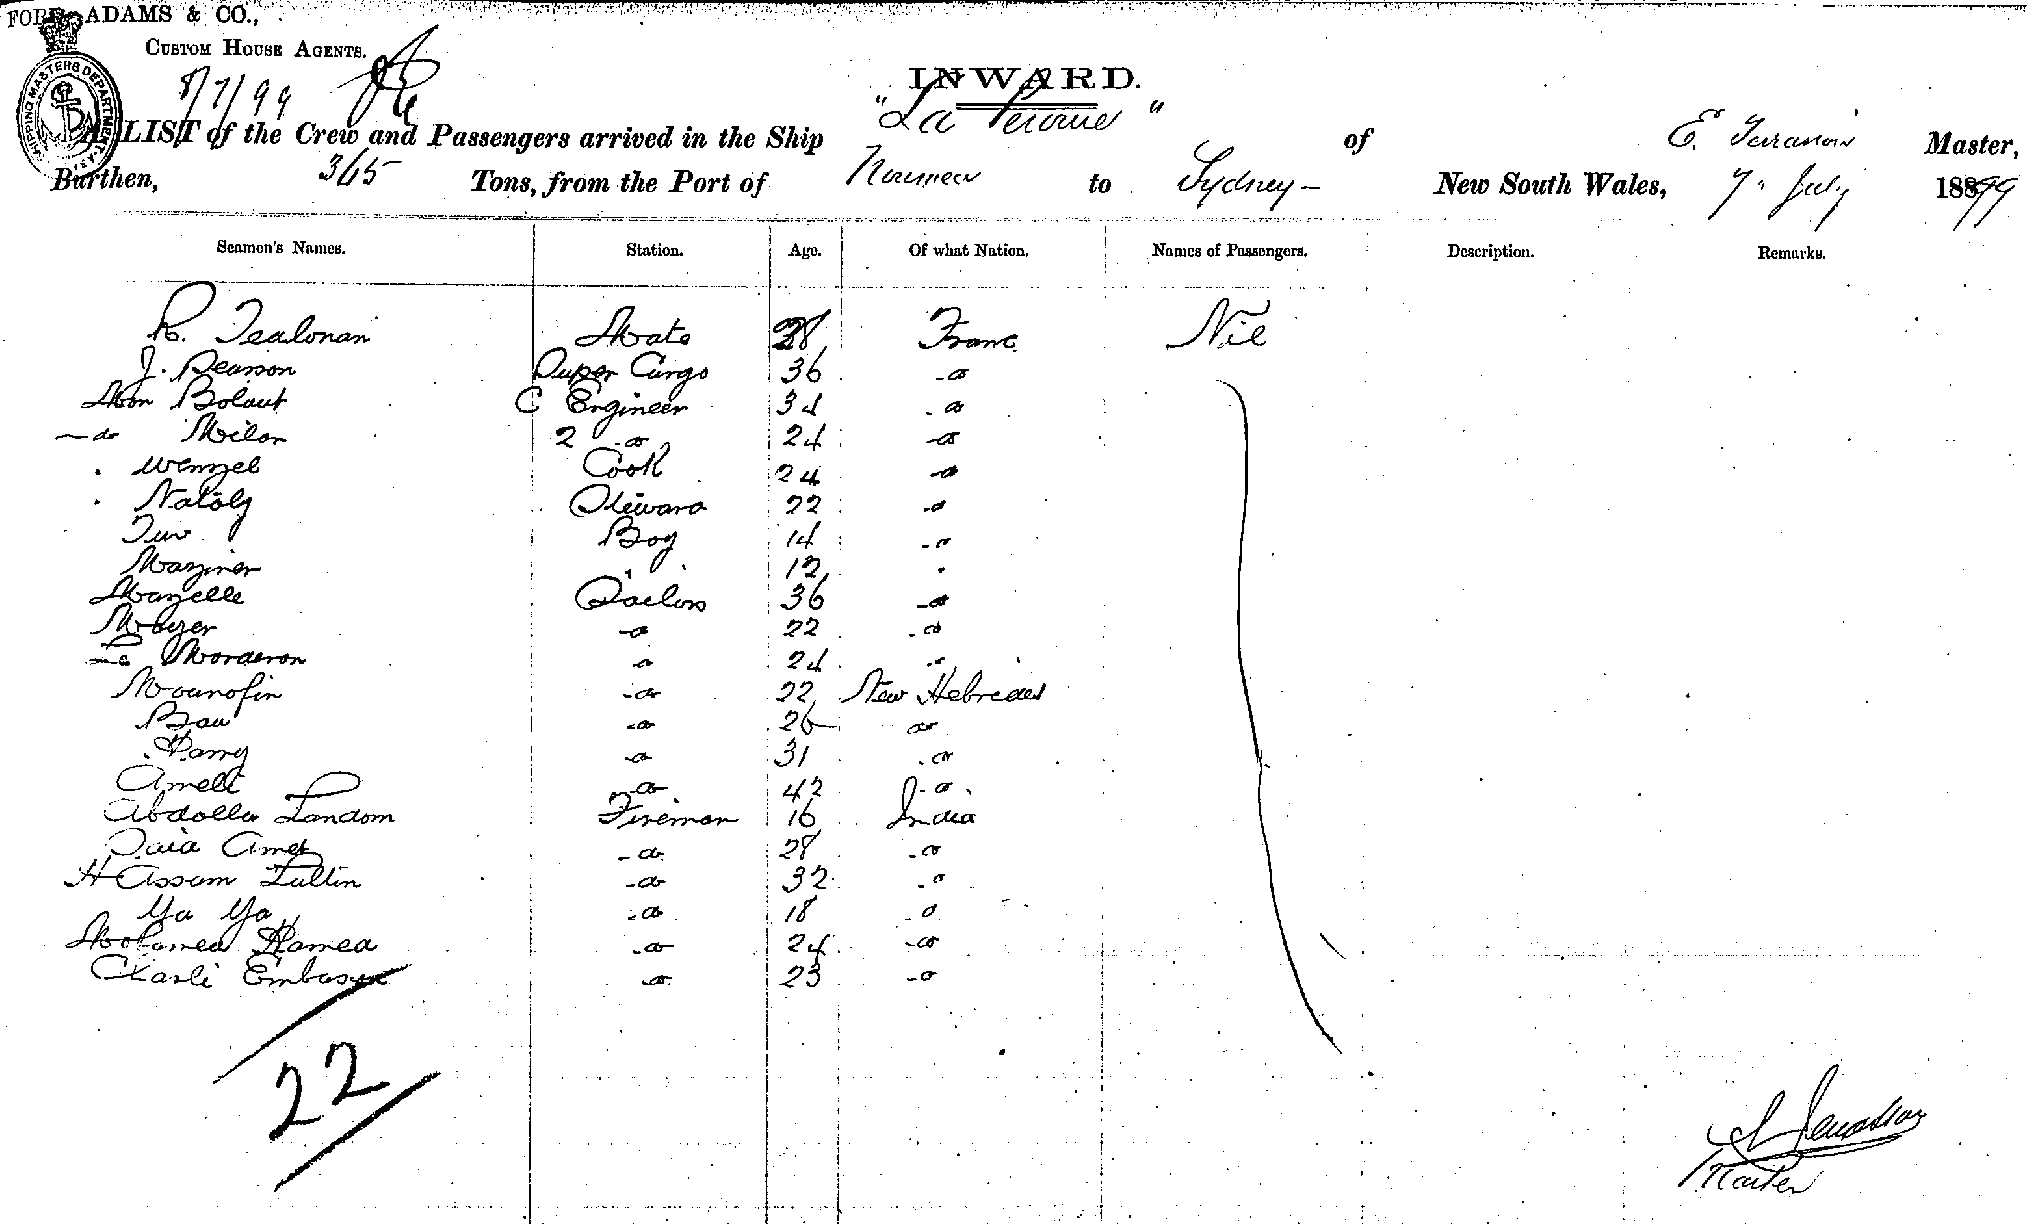 FORD, ADAMS & CO.,
CUSTOM HOUSE AGENTS.
SHIPPING MASTERS DEPARTMENT
8/7/99
INWARD.
A LIST of the Crew and Passengers arrived in the Ship "La Perouse" of E. Master,
Burthen, 365 Tons, from the Port of Noumea to Sydney - New South Wales, 7 July 1899
Seamen's Names. Station. Age. Of what Nation. Names of Passengers. Description. Remarks.
R. Tealonan Mate 28 Franc Nil
J. Pearson Super Cargo 36 -do
Mon Bolaut C Engineer 34 -do
-do Milon 2 -do 24 -do
" Wenzel Cook 24 -do
" Nataly Steward 22 -do
Boy 14 -do
Maziner " 12 "
Mazelle Sailors 36 -do
Mayer -do 22 -do
Le Morderon -do 24 -do
Mounofin -do 22 New Hebrides
Bau -do 26 do
Harry -do 31 -do
Ameli -do 42 -do
Abdolla Landom Fireman 16 India
Saia Amet -do 28 -do
Hassam Lultin -do 32 -do
Ya Ya -do 18 -do
Mohamed Hamed -do 24 -do
Charli -do 23 -do
22
Master